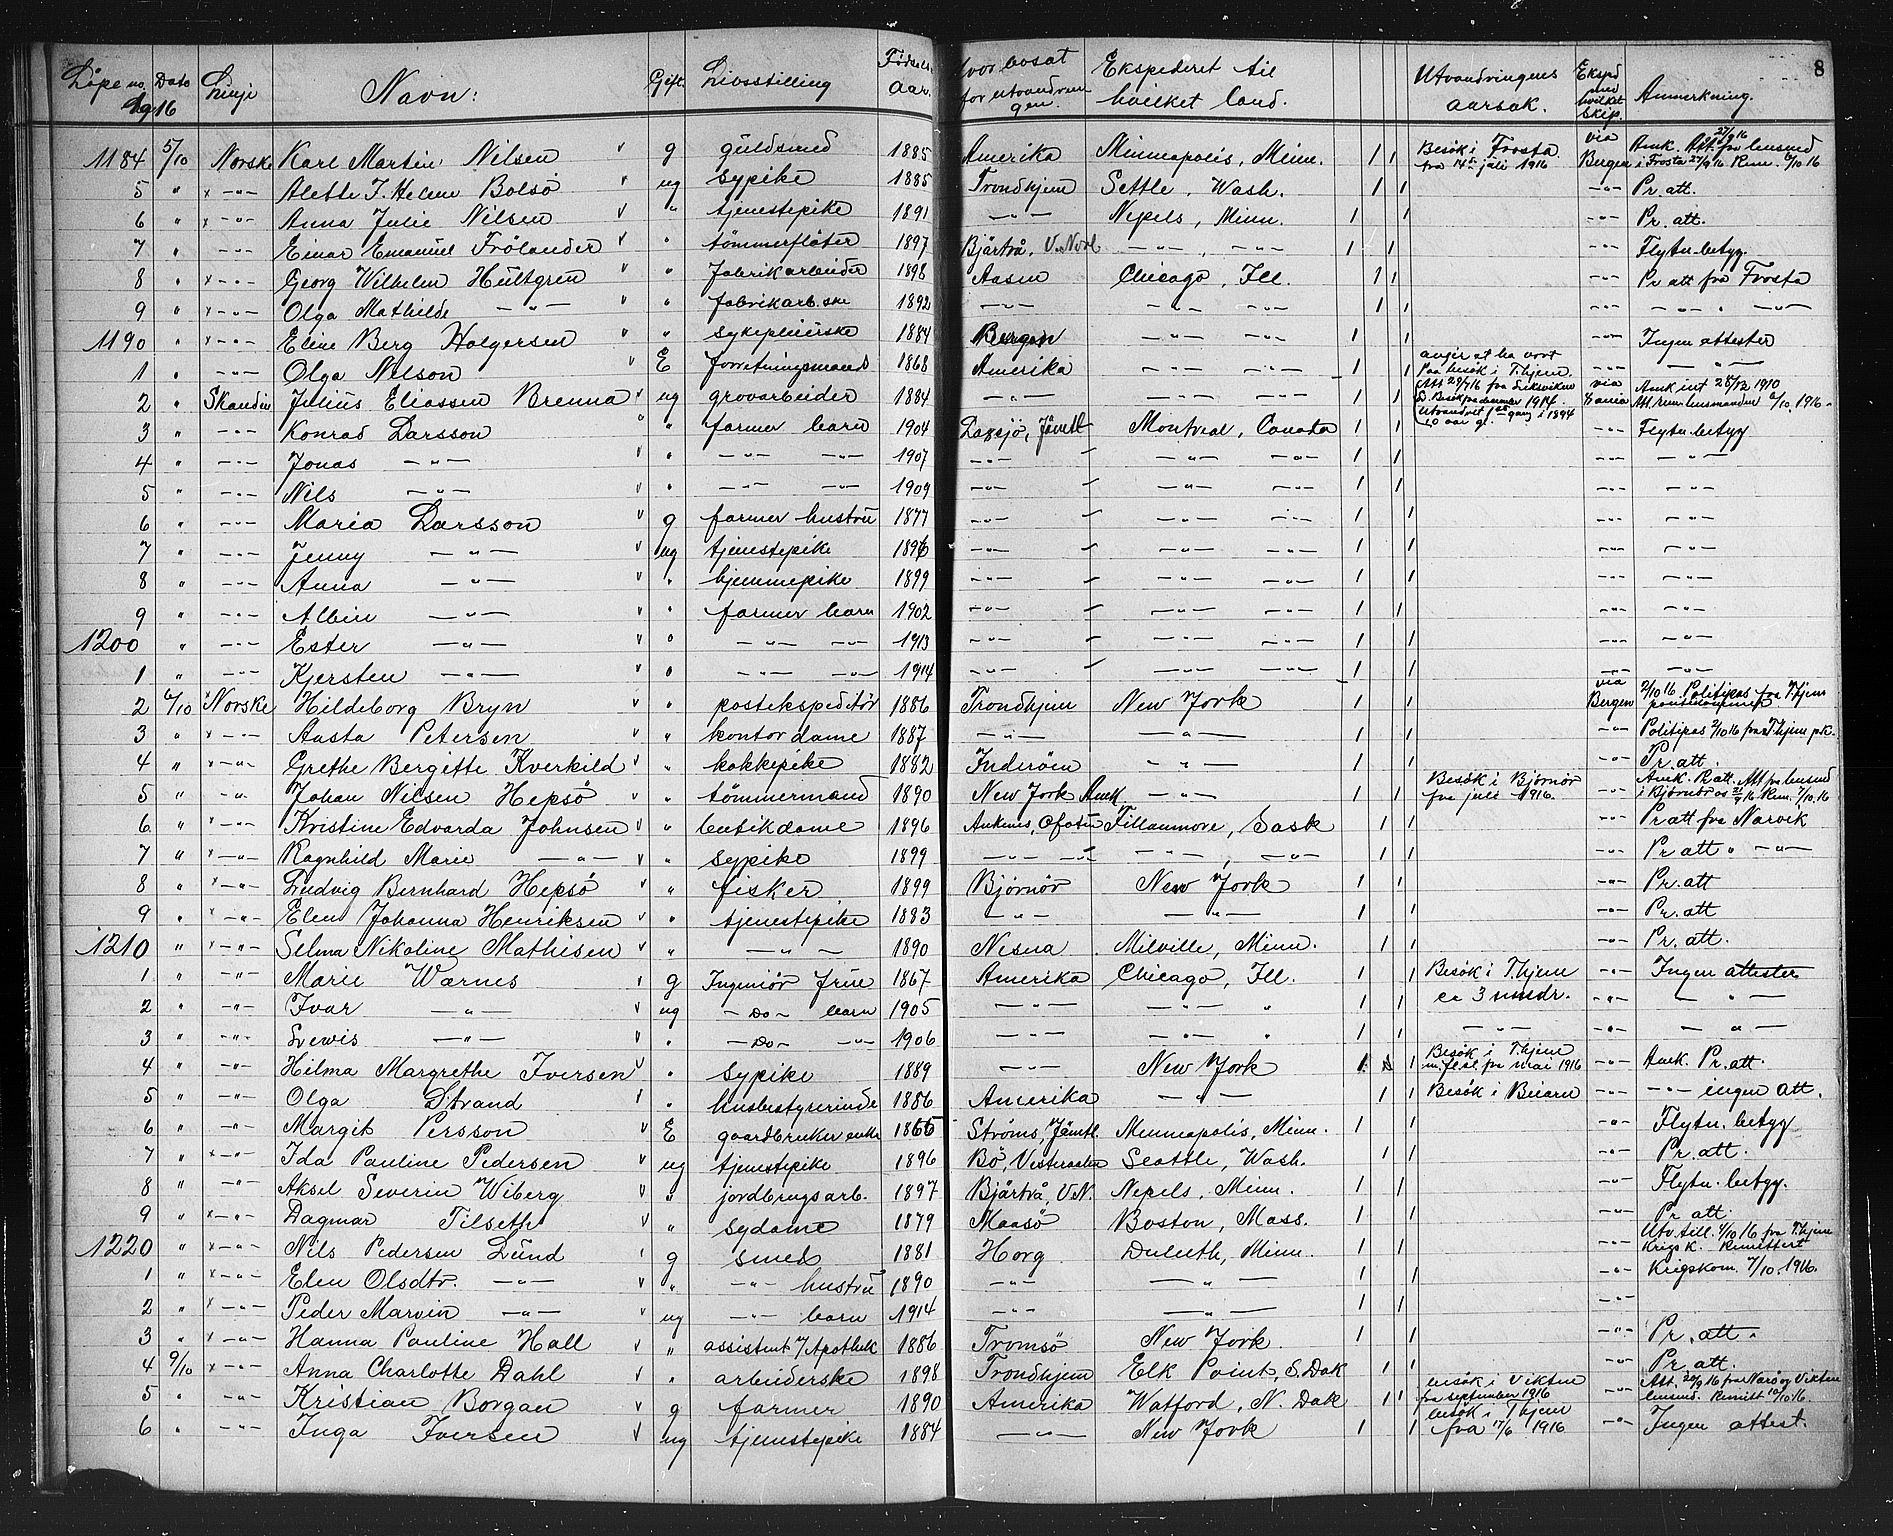 8
Löpe no. Dato Linje Navn: Gift. Livsstilling Födsels aar. Hvor bosat for utvandringen. Ekspederet til hvilket land. Utvandringens aarsak. Eksped med hvilket Skip. Anmerkning.
1916
1184 5/10 Norske Karl Martin Nilsen v g guldsmed 1885 Amerika Minneapolis, Minn. 1 1 Besök i Frosta fra 14de juli 1916 via Bergen Amk. Att. fra lensmd i Frosta 27/9 16 Rem. 6/10 16
5 " x -"- Alette J. Helene Bolsö v ug sypike 1885 Trondhjem Settle, Wash. 1 1 -"- Pr. att.
6 " x -"- Anna Julie Nilsen v " tjenestepike 1891 -"- Nepels, Minn. 1 1 -"- Pr. att.
7 " -"- Einar Emanuel Frölander v " tömmerflöter 1897 Bjärtrå, V. Norl -"- , -"- 1 1 -"- Flytn. betyg.
8 " x -"- Georg Wilhelm Hultgren v " Fabrikarbeider 1898 Aasen Chicago, Ill. 1 1 -"- Pr att fra Frosta
9 " x -"- Olga Mathilde -"- v " fabrikarb.ske 1892 -"- -"- -"- 1 1 -"- -"- " -"-
1190 " x -"- Eline Berg Holgersen v " sykepleierske 1884 Bergen -"- -"- 1 1 -"- Ingen attester
1 " -"- Olga Nilson v E forretningsmand 1868 Amerika -"- -"- 1 1 angir at ha vort paa besök i T.hjem. -"- -"-
2 " Skandin Julius Eliassen Brenna v ug grovarbeider 1884 -"- -"- -"- 1 1 Besök fra 1914. Utvandret 1ste gang i 1894 10 aar gl. via Amk int 28/12 1910 Att. rem. lensmanden 6/10, 1916.
3 " -"- Konrad Larsson v " farmer barn 1904 Laxsjö, Jämtl Montreal, Canada 1 1 -"- Flytn. betyg
4 " -"- Jonas -"- v " -"- -"- 1907 -"- -"- -"- 1 1 -"- -"-
5 " -"- Nils -"- v " -"- -"- 1909 -"- -"- -"- 1 1 -"- -"-
6 " -"- Maria Larsson v g farmer hustru 1877 -"- -"- -"- 1 1 -"- -"-
7 " -"- Jenny -"- v ug tjenestepike 1896 -"- -"- -"- 1 1 -"- -"-
8 " -"- Anna -"- v " hjemmepike 1899 -"- -"- -"- 1 1 -"- -"-
9 " -"- Albin -"- v " farmer barn 1902 -"- -"- -"- 1 1 -"- -"-
1200 " -"- Ester -"- v " -"- -"- 1913 -"- -"- -"- 1 1 -"- -"-
1 " -"- Kjersten -"- v " -"- -"- 1914 -"- -"- -"- 1 1 -"- -"-
2 6/10 x Norske Hildeborg Bryn v " postekspeditör 1886 Trondhjem New York 1 1 via Bergen 2/10 16 Politipas fra T.hjem
3 " x -"- Aasta Petersen v " kontordame 1887 -"- -"- 1 1 -"- Politipas 2/10 16 fra T.hjem p.k.
4 " x -"- Grethe Bergitte Kverkild v " kokkepike 1882 Inderöen -"- 1 1 -"- Pr. att.
5 " -"- Johan Nilsen Hepsö v " tömmermand 1890 New York Amk -"- 1 1 Besök i Björnör fra juli 1916. -"- Amk. P. att. Att fra lensmd i Björnör 21/9 16 Rem. 7/10.16
6 " x -"- Kristine Edvarda Johnsen v " butikdame 1896 Ankenes, Ofoten Fillanmore, Sask 1 1 -"- Pr att fra Narvik
7 " x -"- Ragnhild Marie -"- v " sypike 1899 -"- -"- -"- , -"- 1 1 -"- Pr. att " -"-
8 " x -"- Ludvig Bernhard Hepsö v " fisker 1899 Björnör New York 1 1 -"- Pr. att
9 " x -"- Elen Johanna Henriksen v " tjenestepike 1883 -"- -"- 1 1 -"- Pr. att
1210 " x -"- Selma Nikoline Mathisen v " -"- 1890 Nesna Milville, Minn. 1 1 -"- Pr. att.
1 " -"- Marie Wærnes v g Ingeniör frue 1867 Amerika Chicago, Ill. 1 1 Besök i T.hjem -"- Ingen attester
2 " -"- Ivar -"- v ug -Do- barn 1905 -"- -"- " 1 1 ca 3 mndr. -"- -"-
3 " -"- Lewis -"- v " -Do- -"- 1906 -"- -"- " 1 1 -"- -"- -"-
4 " -"- Hilma Margrethe Iversen v " sypike 1889 -"- New York 1 1 Besök i T.hjem m. fl. st. fra mai 1916 -"- Amk. Pr. att.
5 " -"- Olga Strand v " husbestyrerinde 1886 Amerika -"- 1 1 Besök i Beiarn -"- -"- ingen att.
6 " -"- Margit Persson v E gaardbruker enke 1866 Ströms, Jämtl. Minneapolis, Minn. 1 1 -"- Flytn. betyg
7 " x -"- Ida Pauline Pedersen v ug tjenestepike 1896 Bö, Vesteraalen Seattle, Wash. 1 1 -"- Pr. att.
8 " -"- Aksel Severin Wiberg v " jordbrugsarb. 1897 Bjärtrå, V.N. Nepels, Minn. 1 1 -"- Flytn. betyg.
9 " x -"- Dagmar Tilseth v " sydame 1879 Maasö Boston, Mass. 1 1 -"- Pr. att.
1220 " x -"- Nils Pedersen Lund v g smed 1881 Horg Duluth, Minn. 1 1 -"- Utv. till. 4/10 16 fra T.hjem Krigsk. Remittert
1 " x -"- Elen Olsdtr. -"- v " -"- hustru 1890 -"- -"- 1 1 -"- Krigskom. 7/10. 1916.
2 " x -"- Peder Marvin -"- v ug -"- barn 1914 -"- -"- 1 1 -"-
3 " x -"- Hanna Pauline Hall v " assistent v/ Apothek 1886 Tromsö New York. 1 1 -"- Pr. att.
4 9/10 x -"- Anna Charlotte Dahl v " arbeiderske 1898 Trondhjem Elk Point, S. Dak 1 1 -"- Pr. att.
5 " -"- Kristian Borgan v g farmer 1890 Amerika Watford, N. Dak 1 1 besök i Vikten fra september 1916 -"- Att. 20/9 16 fra Nærö og Vikten lensmd. Remitt 10/10 16.
6 " -"- Inga Iversen v ug tjenestepike 1884 -"- New York 1 1 besök i T.hjem fra 17/6 1916 -"- Ingen attest.